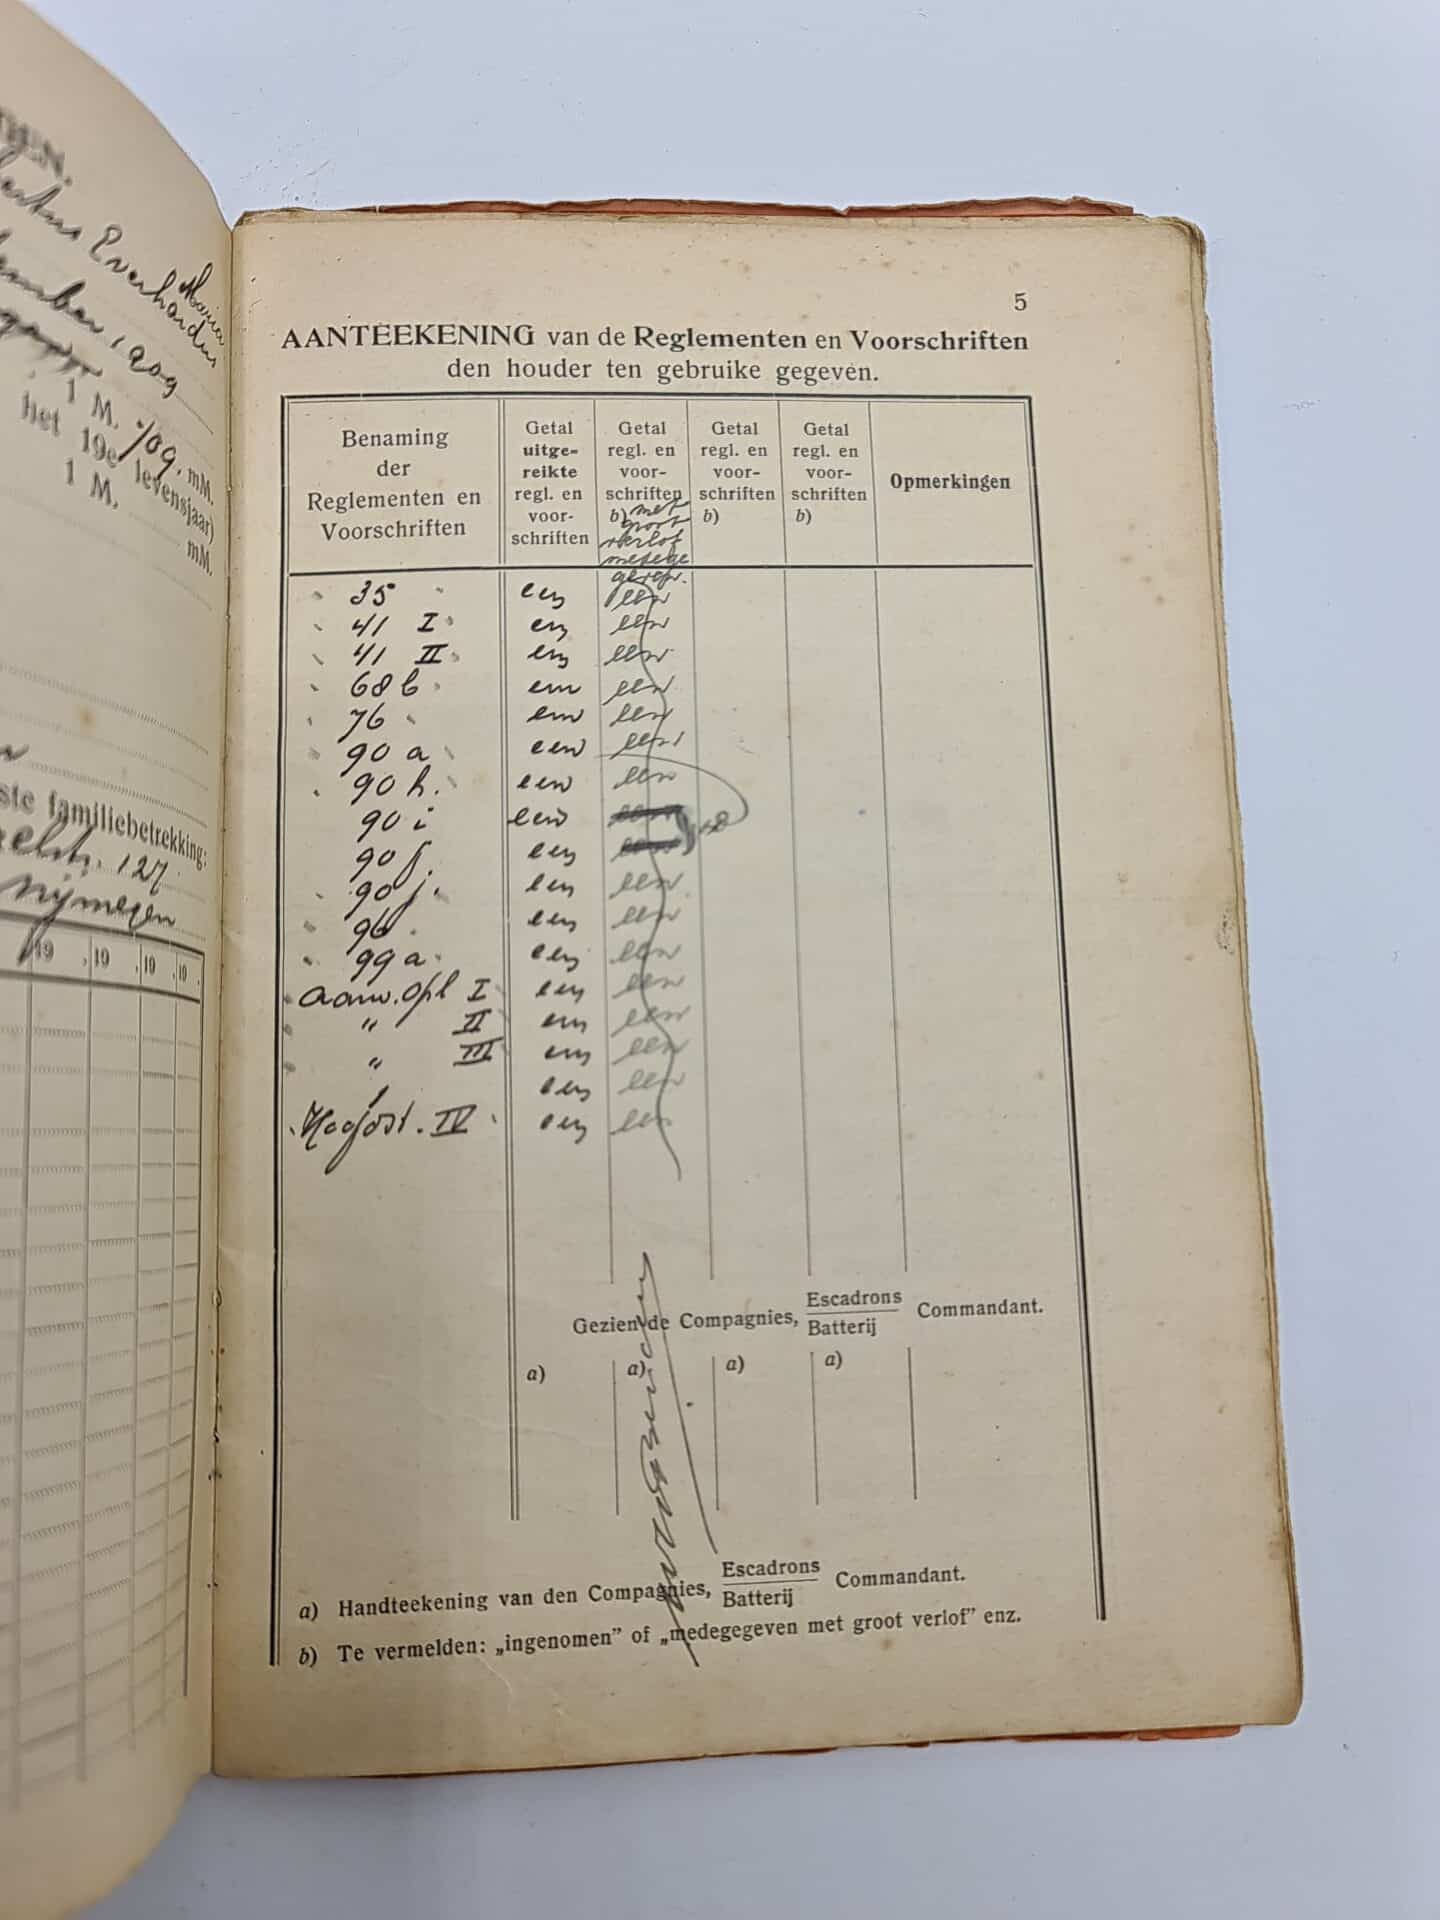 Everhardus
Maria
1909
1 M. 709. mM.
het 19e levensjaar)
1 M. mM.
ste familiebetrekking:
127
Nijmegen
19 19 19 19
5
AANTEEKENING van de Reglementen en Voorschriften
den houder ten gebruike gegeven.
Benaming
der
Reglementen en
Voorschriften
Getal
uitge-
reikte
regl. en
voor-
schriften
Getal
regl. en
voor-
schriften
b) met
groot
verlof
medege
Getal
regl. en
voor-
schriften
b)
Getal
regl. en
voor-
schriften
b)
Opmerkingen
35 een een
41 I een een
41 II een een
68 b een een
76 een een
90 a een een
90 h. een een
90 i een een
90 j. een een
90 j. een een
96 een een
99 a een een
Aanw. Opl I een een
" II een een
" III een een
een een
Hoofdst. IV een een
Gezien de Compagnies, Escadrons
Batterij Commandant.
a) a) a) a)
a) Handteekening van den Compagnies, Escadrons
Batterij Commandant.
b) Te vermelden: „ingenomen” of „medegegeven met groot verlof” enz.